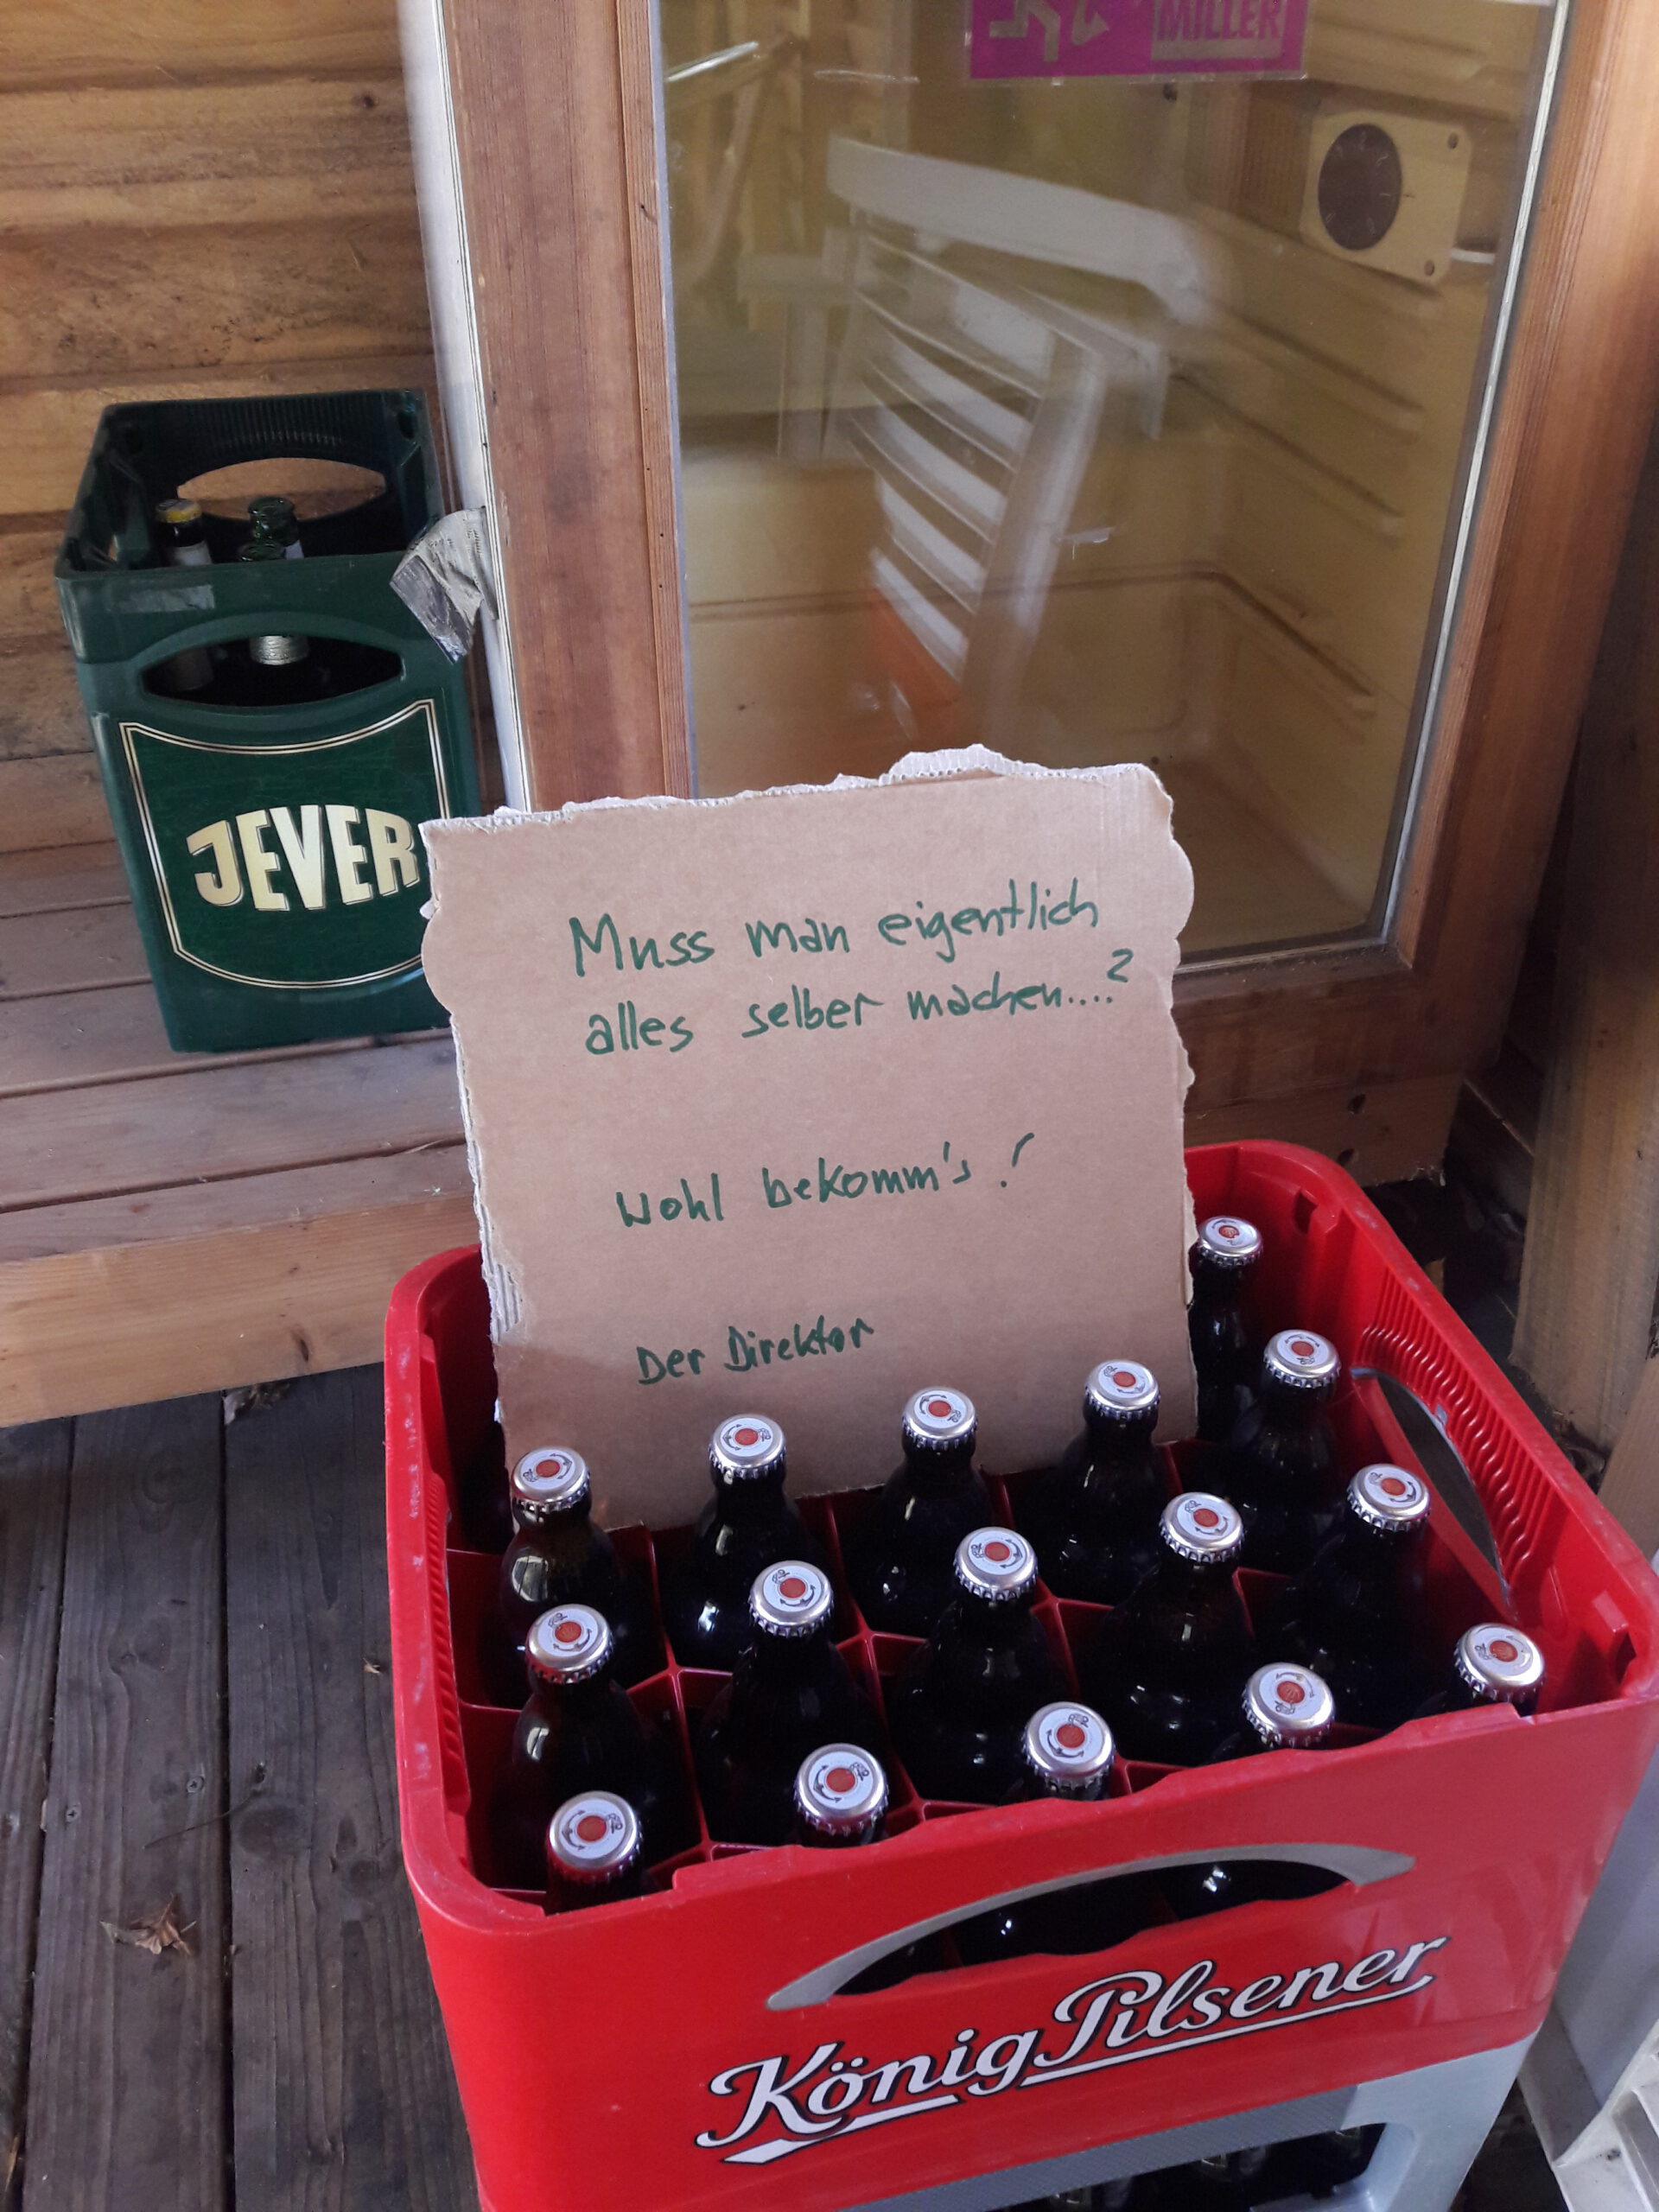 MILLER
JEVER
Muss man eigentlich
alles selber machen....?
Wohl bekomm's!
Der Direktor
König Pilsener